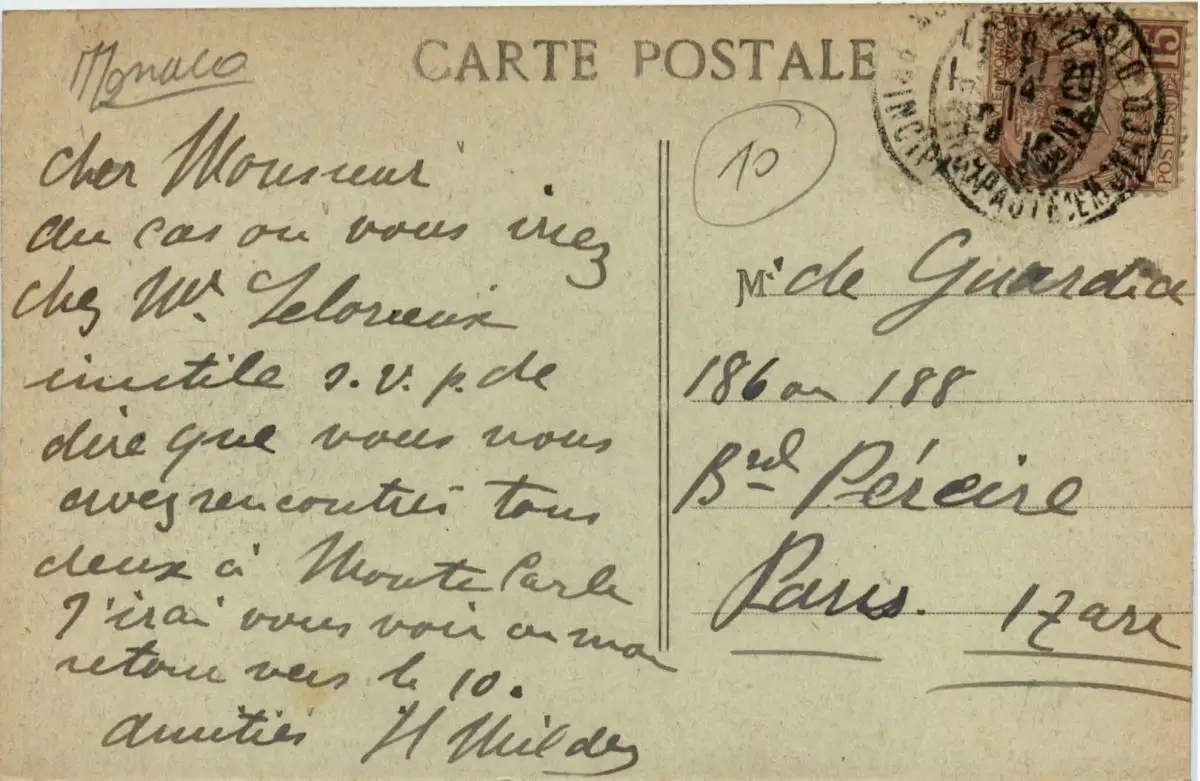 Monaco
CARTE POSTALE
10
cher Monsieur
au cas ou vous iriez
chez Mr. Lelorieux
inutile s.v.p. de
dire que vous nous
avez rencontrés tous
deux à Monte Carlo
J'irai vous voir a mon
retour vers le 10.
amitiés H
Mr de Guardia
186 ou 188
Brd Péreire
Paris. 17 arr
15
MONACO
POSTES